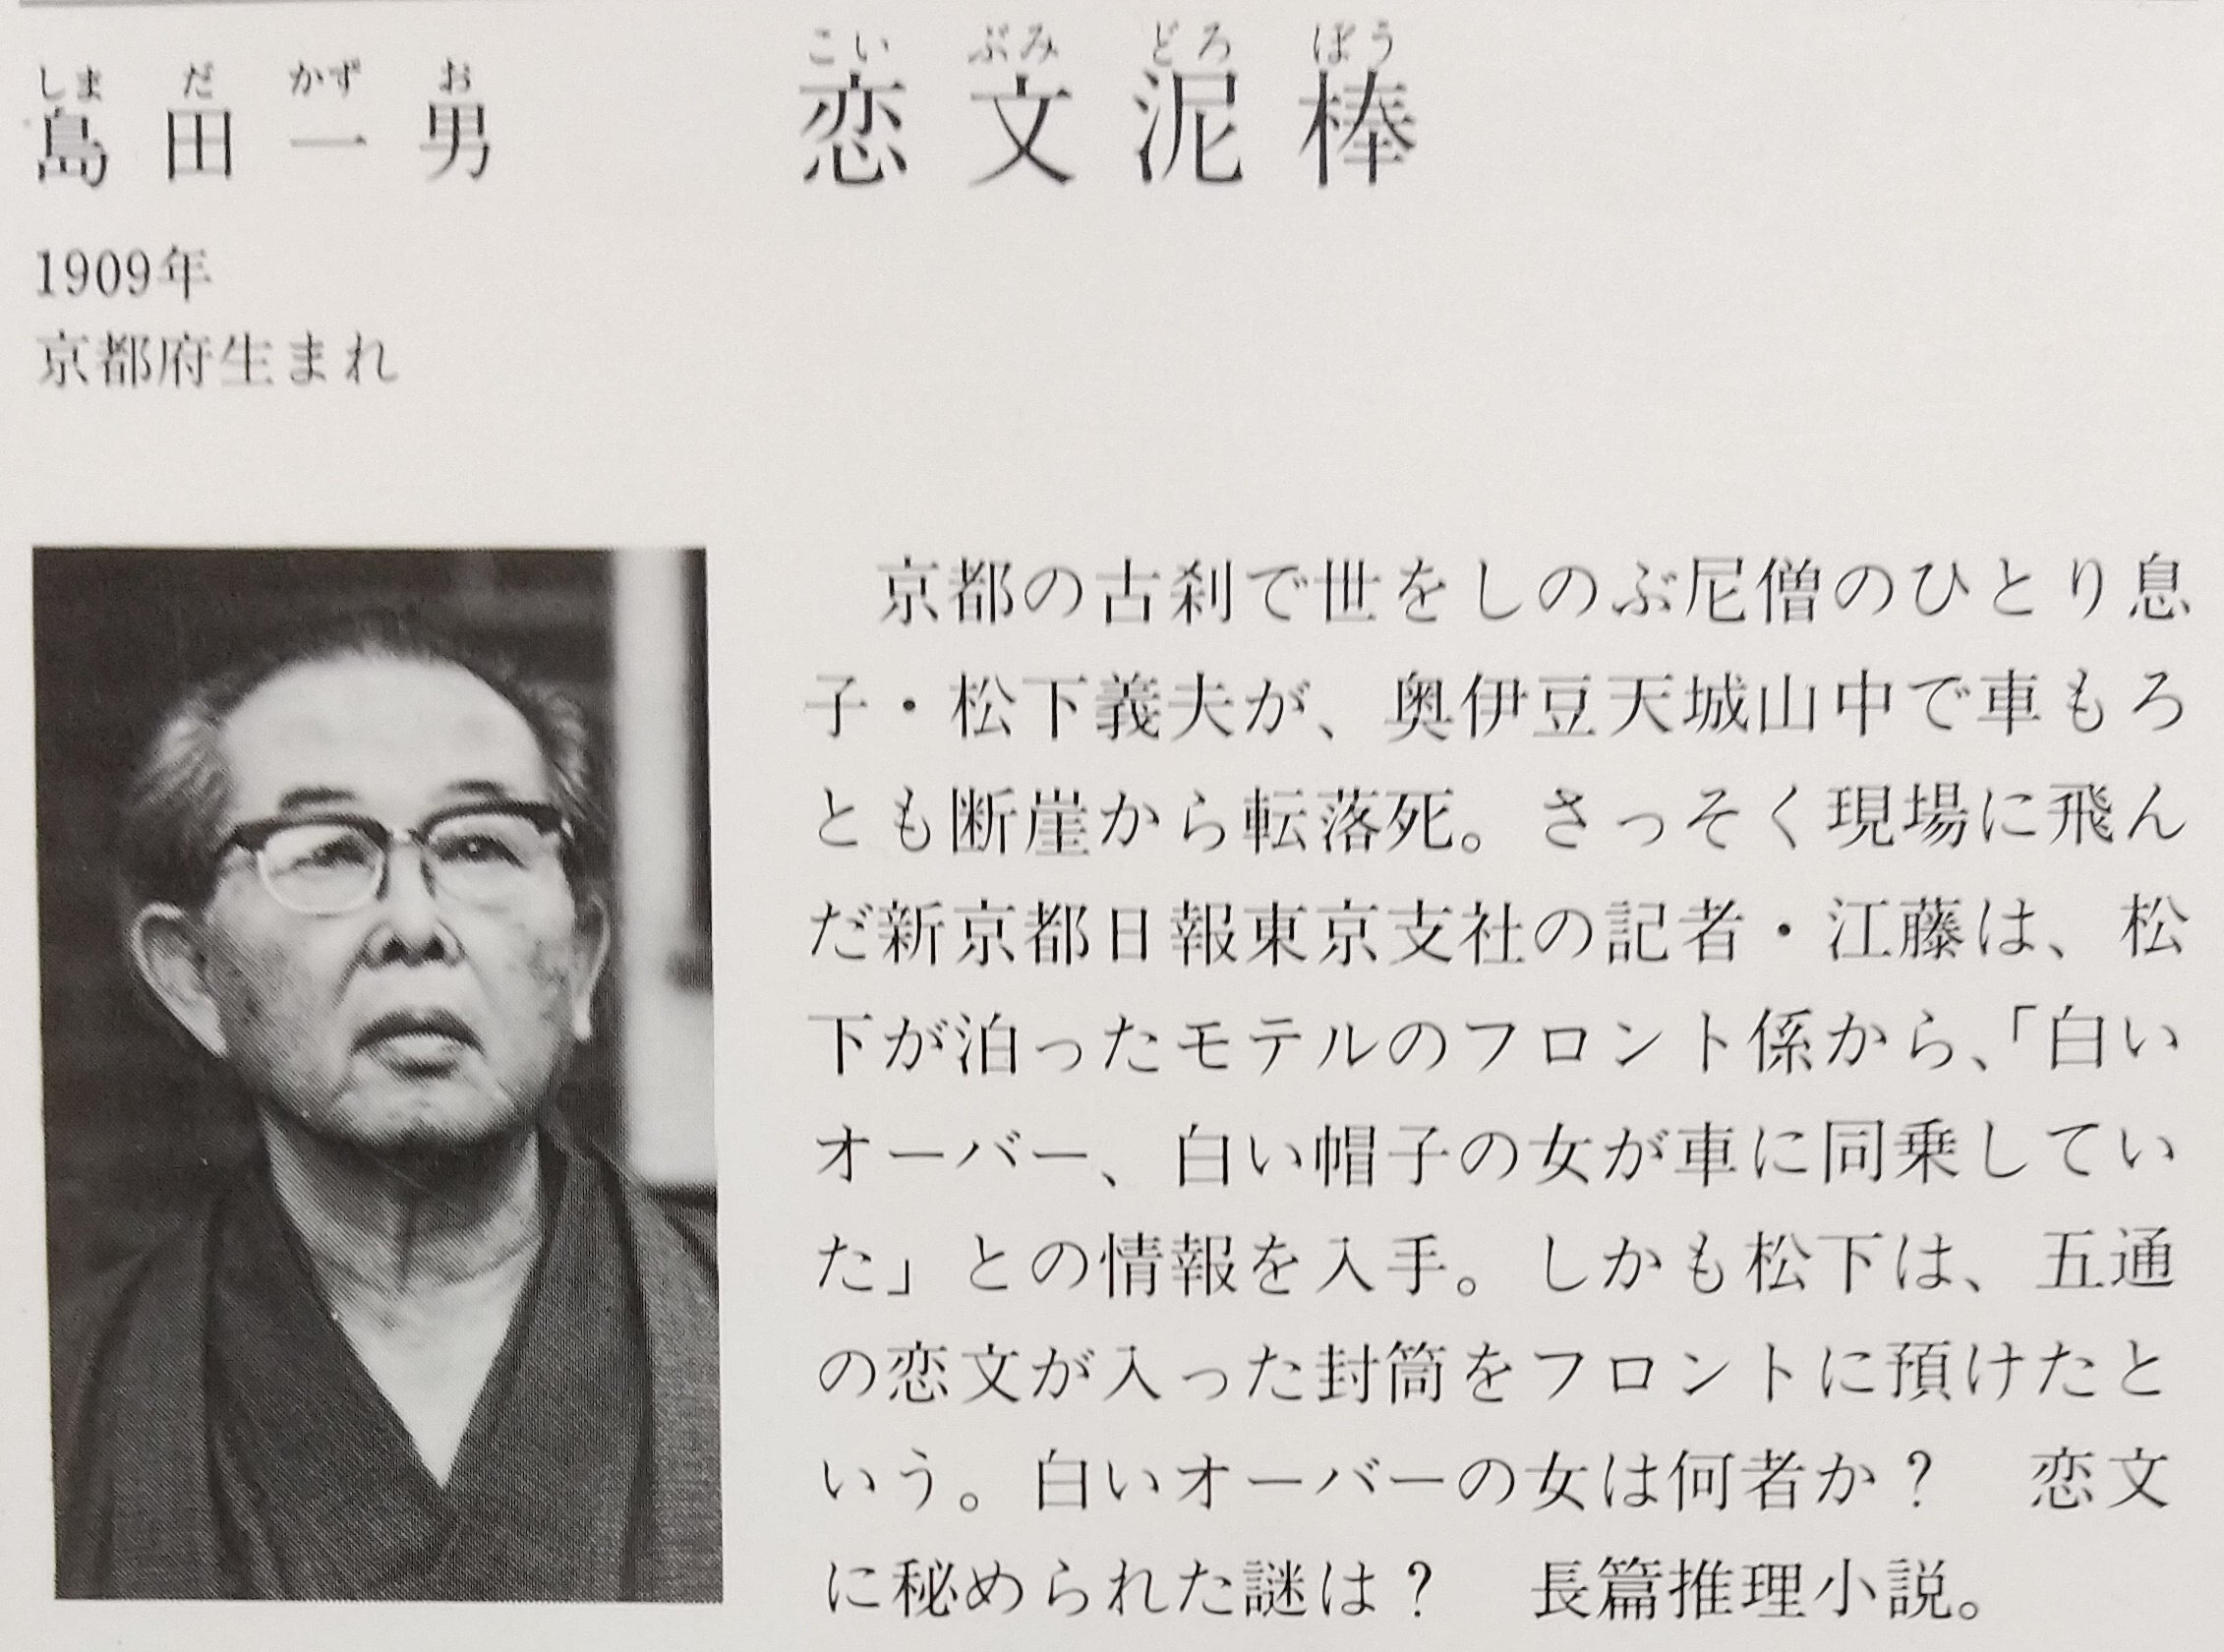 しまだかずお
島田一男
1909年
京都府生まれ
こいぶみどろぼう
恋文泥棒
京都の古刹で世をしのぶ尼僧のひとり息
子・松下義夫が、奥伊豆天城山中で車もろ
とも断崖から転落死。さっそく現場に飛ん
だ新京都日報東京支社の記者・江藤は、松
下が泊ったモテルのフロント係から、「白い
オーバー、白い帽子の女が車に同乗してい
た」との情報を入手。しかも松下は、五通
の恋文が入った封筒をフロントに預けたと
いう。白いオーバーの女は何者か？　恋文
に秘められた謎は？　長篇推理小説。